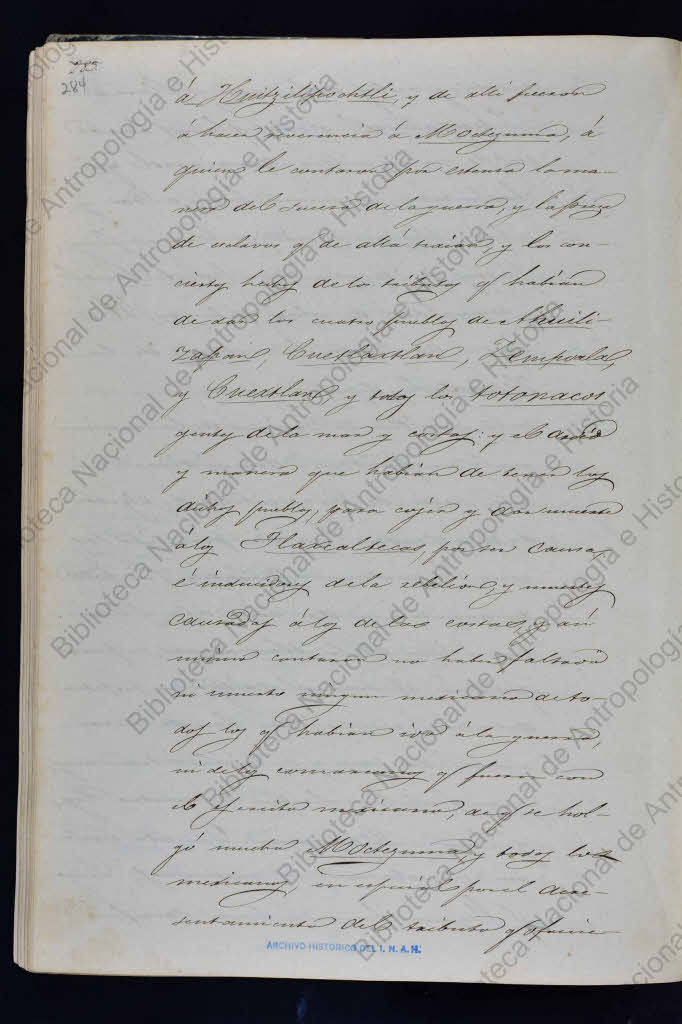 284
á Huitzilipochtli, y de allí fueron
á hacer reverencia á Moctezuma, á
quien le contaron por estenso la ma-
nera del suceso de la guerra, y la presa
de esclavos q de allá traían, y los con-
ciertos hechos de los tributos q habian
de dar los cuatro pueblos de Ahuili-
zapan, Cuetlaxtlan, Zempoala,
y Cuextlan, y todos los totonacos
gentes de la mar y costas: y el
y manera que habian de tener los
dichos pueblos, para cojer y dar muerte
á los Tlaxcaltecas, por ser causa,
é inducidores de la rebelion, y muertes
causadas á los de las costas, y asi
mismo contaron no haber faltado
ni muerto ningun mexicano de to-
dos los q habian ido á la guerra,
ni de los comarcanos q fueron con
el ejercito mexicano, de q se hol-
gó mucho Moctezuma, y todos los
mexicanos, en especial por el acre-
sentamiento del tributo q ofrecie-
ARCHIVO HISTORICO DEL I. N. A. H.
Biblioteca Nacional de Antropología e Historia